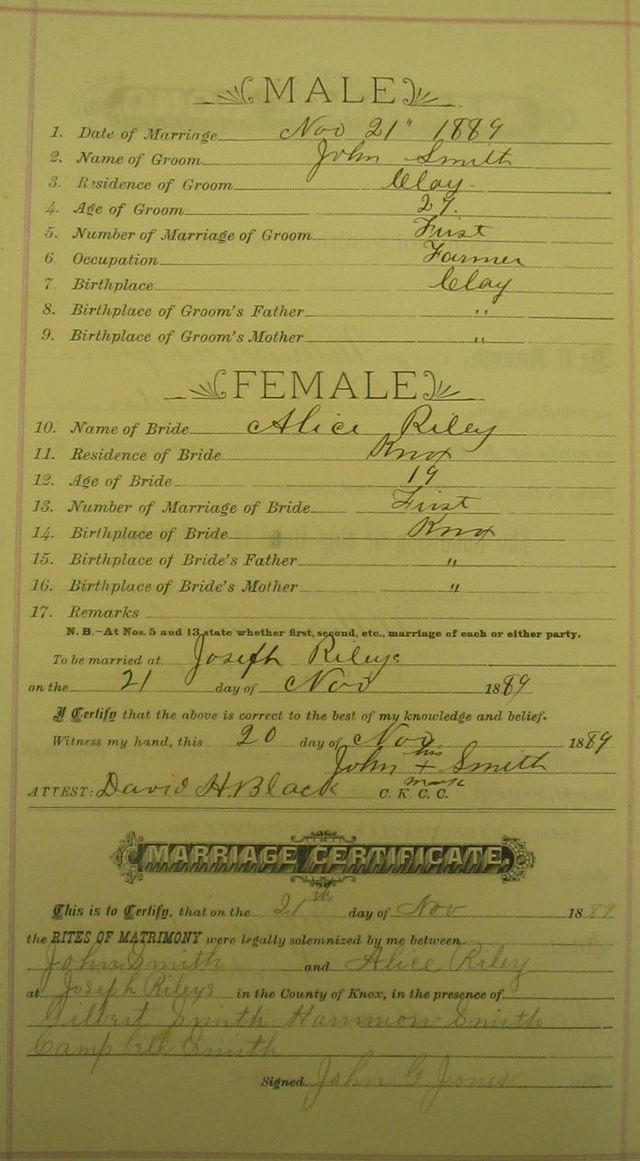 MALE
1. Date of Marriage Nov 21" 1889
2. Name of Groom John Smith
3. Residence of Groom Clay
4. Age of Groom 27.
5. Number of Marriage of Groom First
6 Occupation Farmer
7 Birthplace Clay
8. Birthplace of Groom's Father "
9. Birthplace of Groom's Mother "
FEMALE
10. Name of Bride Alice Riley
11. Residence of Bride Knox
12. Age of Bride 19
13. Number of Marriage of Bride First
14. Birthplace of Bride Knox
15. Birthplace of Bride's Father "
16. Birthplace of Bride's Mother "
17. Remarks
N. B.—At Nos. 5 and 13, state whether first, second, etc., marriage of each or either party.
To be married at Joseph Rileys
on the 21 day of Nov 1889
I Certify that the above is correct to the best of my knowledge and belief.
Witness my hand, this 20 day of Nov. 1889
John his + mark Smith
ATTEST: David H. Black C. K. C. C.
MARRIAGE CERTIFICATE
This is to Certify, that on the 21th day of Nov 1889
the RITES OF MATRIMONY were legally solemnized by me between
John Smith and Alice Riley
at Joseph Rileys in the County of Knox, in the presence of
Gilbert Smith Hammon Smith
Campbell Smith
Signed John G. Jones